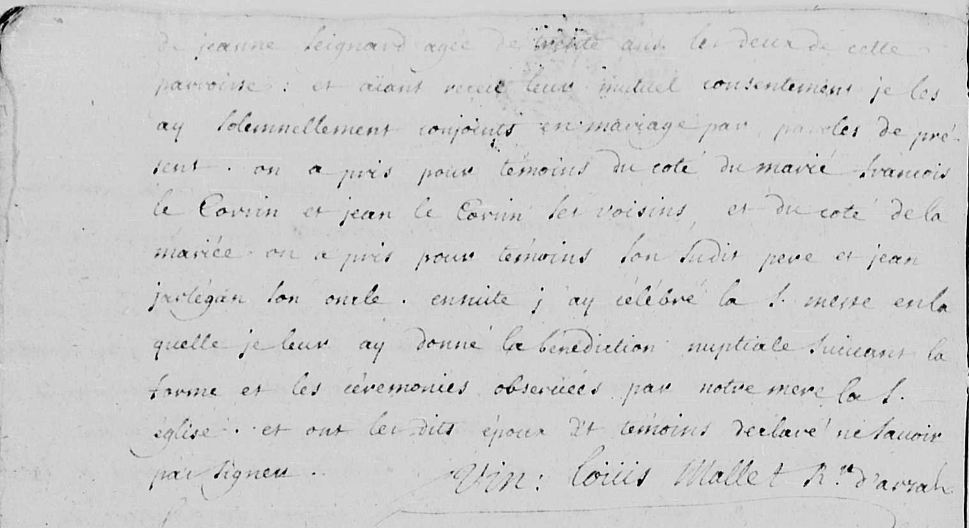 de jeanne seignard agée de trente ans les deux de cette
parroisse : et aiant receu leur mutuel consentement je les
ay solemnellement conjoints en mariage par paroles de pré-
sent . on a pris pour témoins du coté du marié francois
le Corvin et jean le Corvin ses voisins, et du coté de la
mariée on a pris pour témoins son sudit pere et jean
jarlégan son oncle . ensuite j'ay célébré la S. messe en la
quelle je leur ay donné la bénédiction nuptiale suivant la
forme et les cérémonies observées par notre mere la S.
eglise . et ont les dits époux et témoins déclaré ne savoir
pas signer .
Vin: Louis Mallet Rr. d'arzah